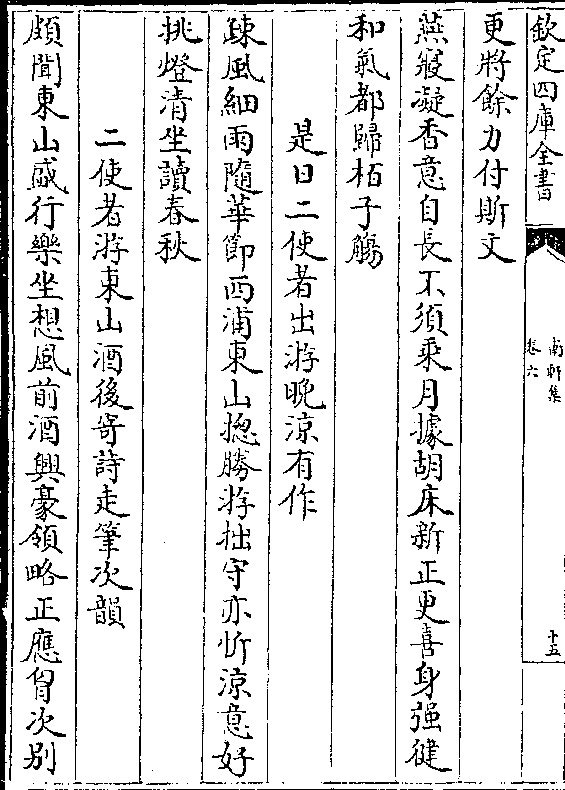 欽定四庫全書
南軒集
卷六
十五
更將餘力付斯文
燕寢凝香意自長不須乘月據胡床新正更喜身强健
和氣都歸栢子觴
是日二使者出游晚涼有作
疎風細雨隨華節西浦東山揔勝游拙守亦忻涼意好
挑燈清坐讀春秋
二使者游東山酒後寄詩走筆次韻
頗聞東山盛行樂坐想風前酒興豪領略正應胷次别